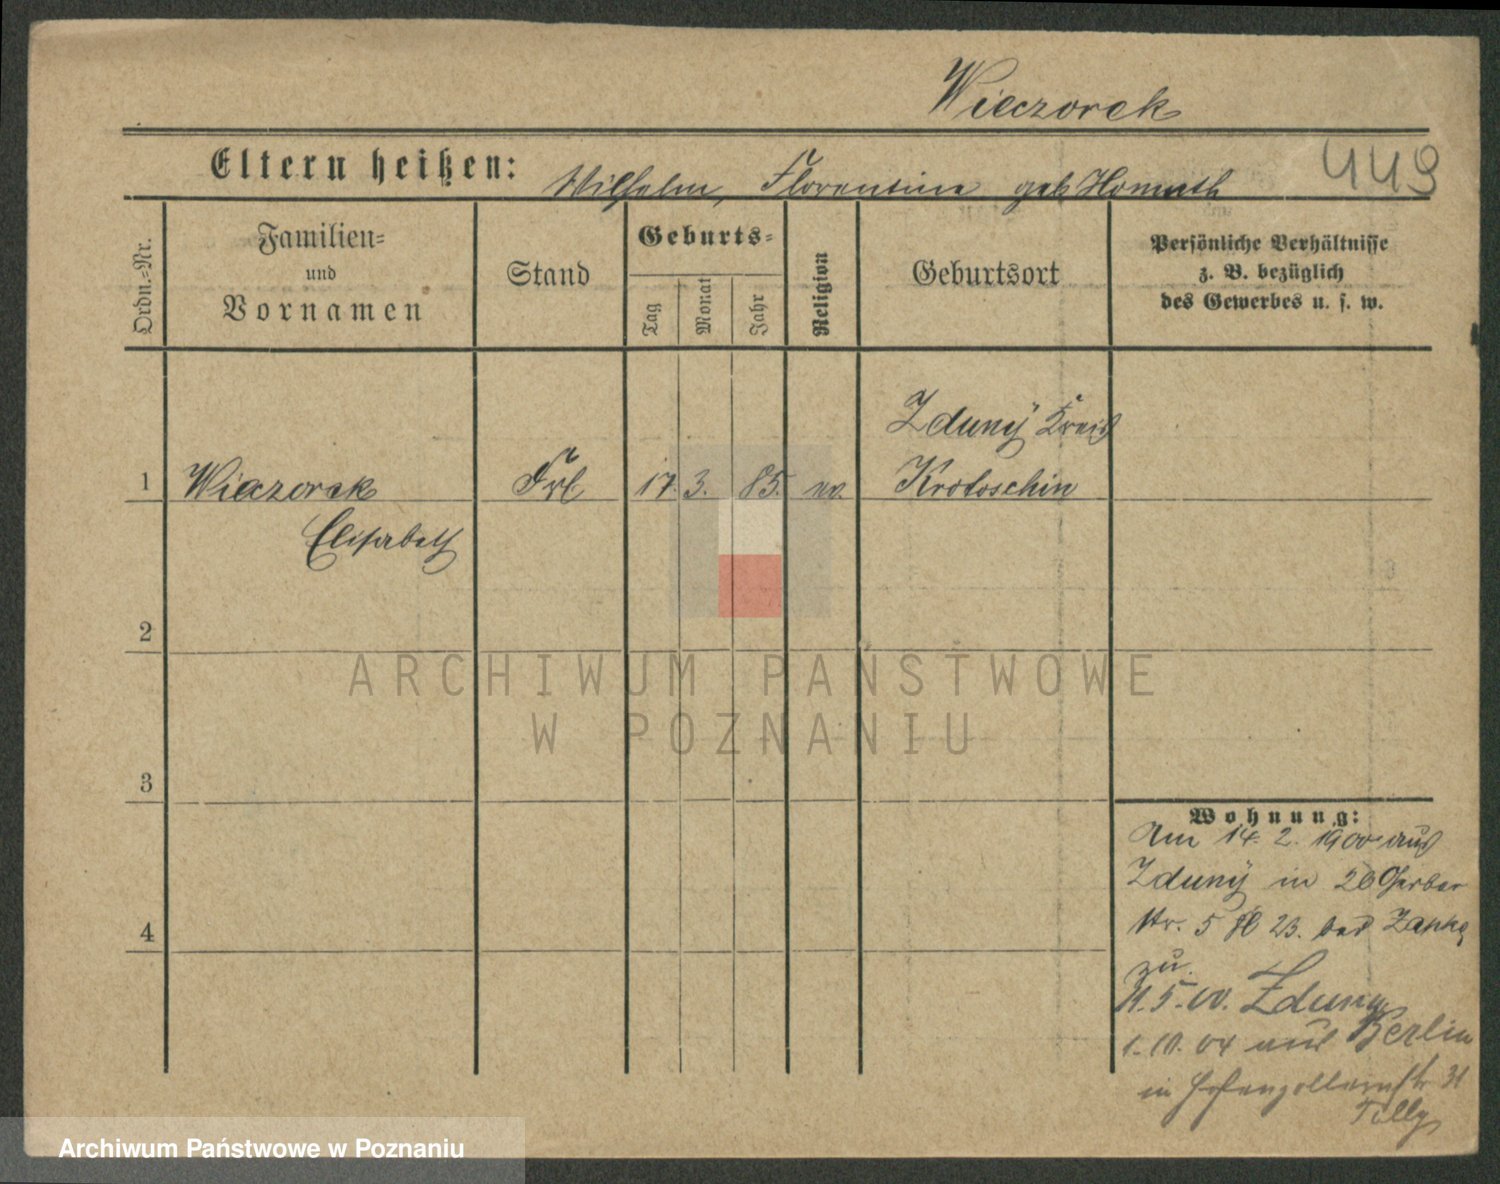 Wieczorek
Eltern heißen: Wilhelm, Florentine geb
449
Ordn.-Nr.
Familien-
und
Vornamen
Stand
Geburts-
Tag
Monat
Jahr
Religion
Geburtsort
Persönliche Verhältnisse
z. B. bezüglich
des Gewerbes u. s. w.
Zduny Kreis
1 Wieczorek Frl 17. 3. 85. ev. Krotoschin
Elisabeth
2
3
4
Wohnung:
Am 14. 2. 1900 aus
Zduny in 26 Gerber
Str. 5 23. bei
zu.
11.5.00. Zduny
1.10.04 aus Berlin
in Hohenzollernstr 31
Tilly
ARCHIWUM PAŃSTWOWE
W POZNANIU
Archiwum Państwowe w Poznaniu